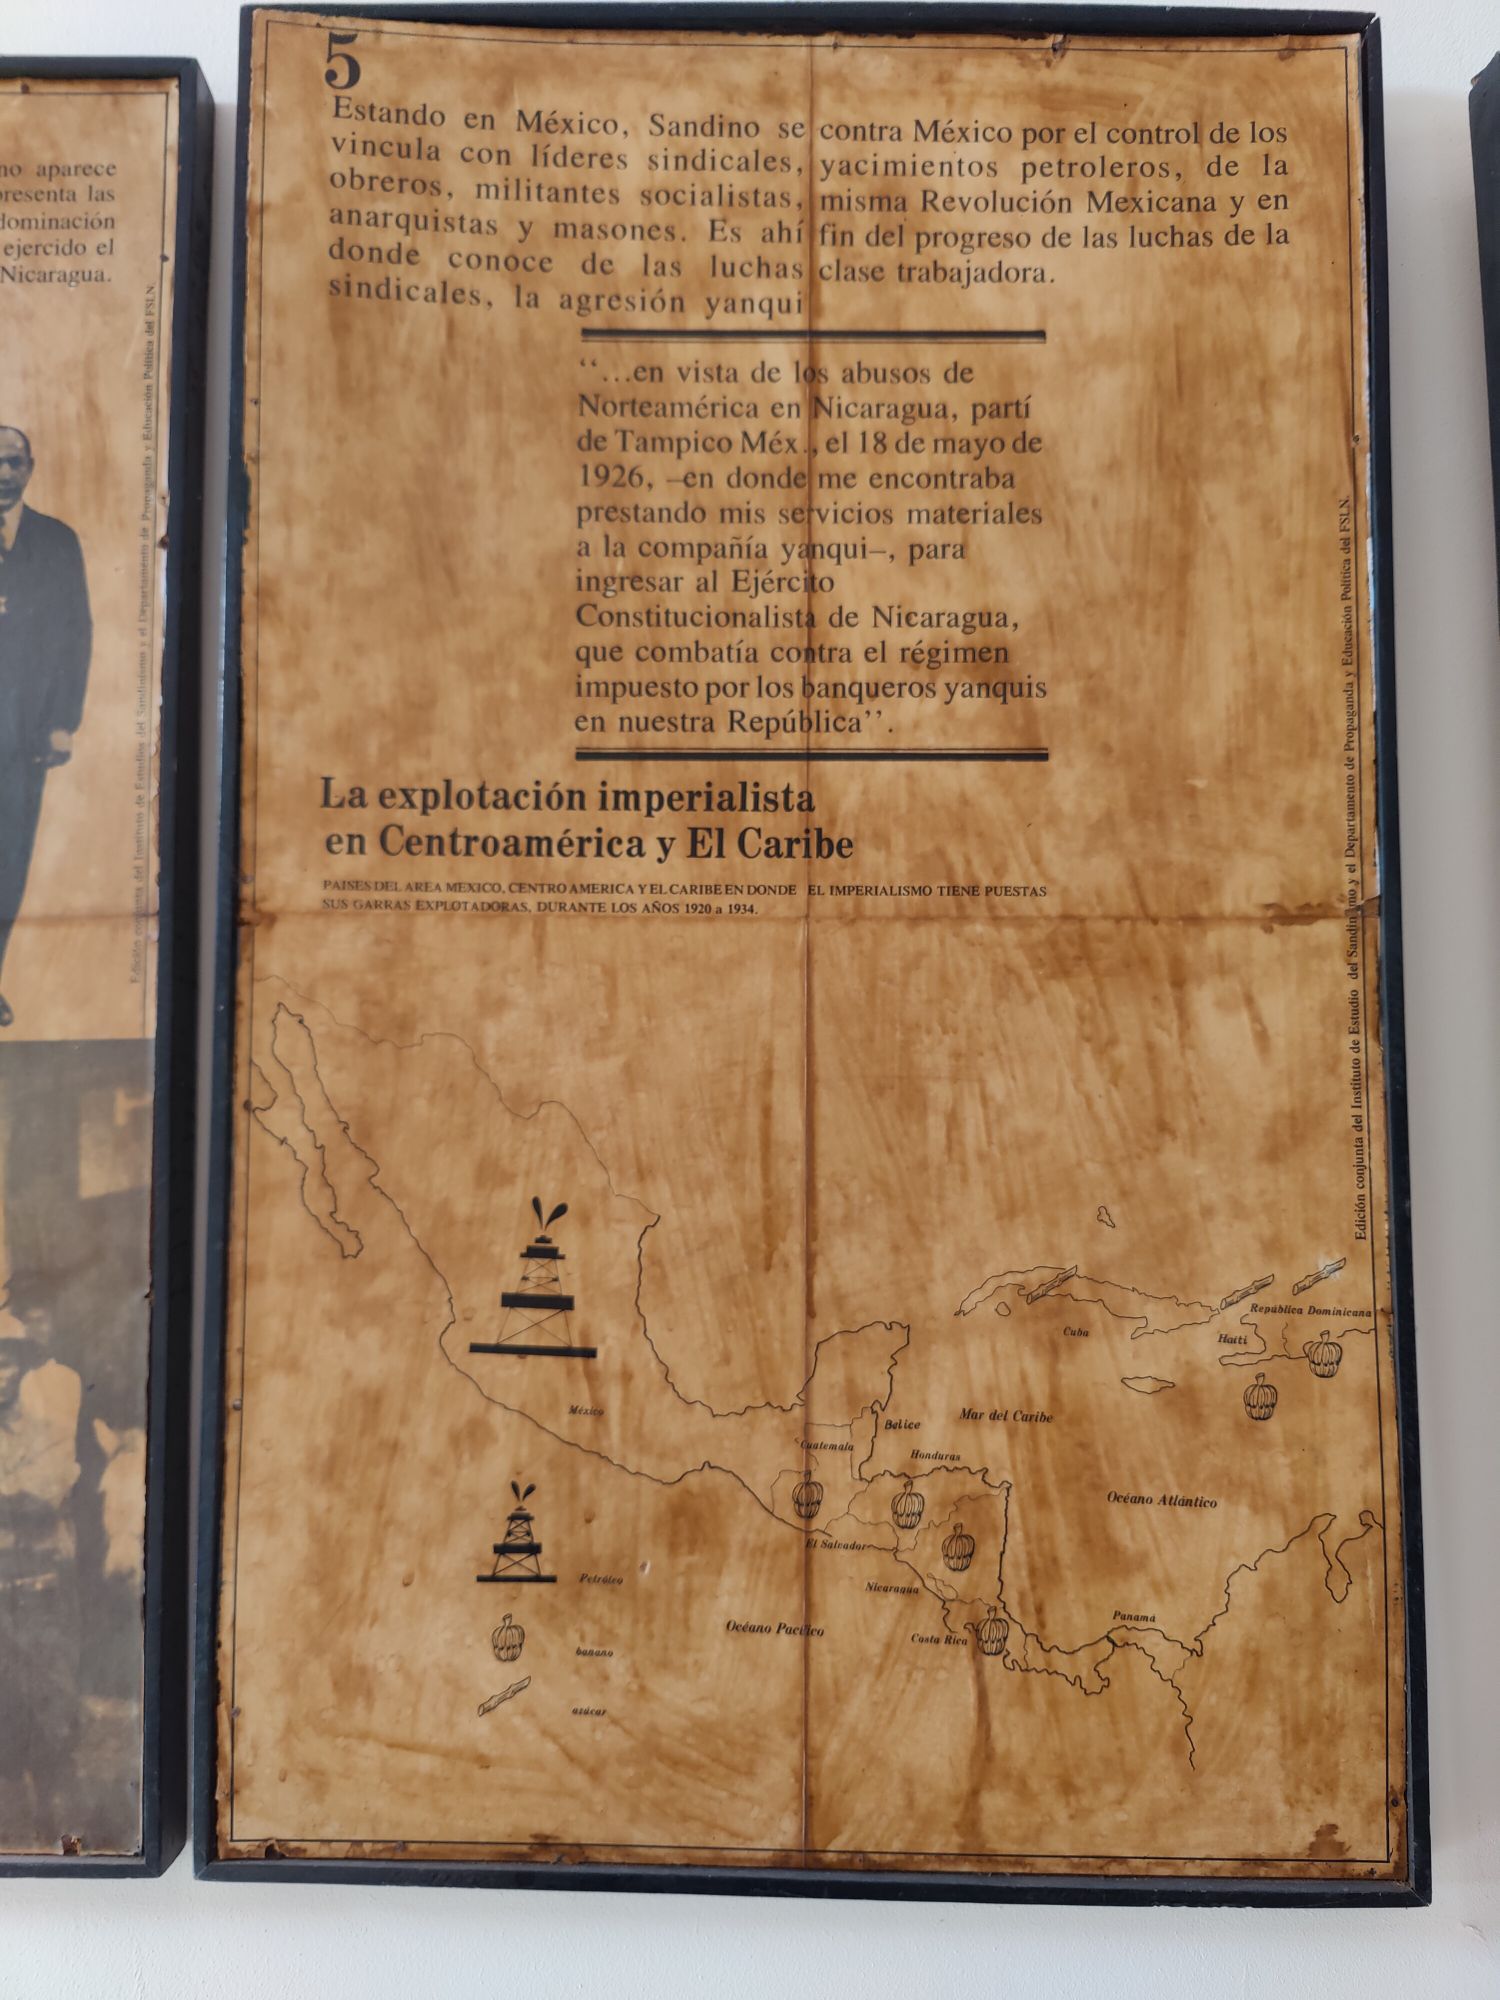 no aparece
presenta las
dominación
ejercido el
Nicaragua.
Edición conjunta del Instituto de Estudios del Sandinismo y el Departamento de Propaganda y Educación Política del FSLN.
5
Estando en México, Sandino se
vincula con líderes sindicales,
obreros, militantes socialistas,
anarquistas y masones. Es ahí
donde conoce de las luchas
sindicales, la agresión yanqui
contra México por el control de los
yacimientos petroleros, de la
misma Revolución Mexicana y en
fin del progreso de las luchas de la
clase trabajadora.
“...en vista de los abusos de
Norteamérica en Nicaragua, partí
de Tampico Méx., el 18 de mayo de
1926, —en donde me encontraba
prestando mis servicios materiales
a la compañía yanqui—, para
ingresar al Ejército
Constitucionalista de Nicaragua,
que combatía contra el régimen
impuesto por los banqueros yanquis
en nuestra República’’.
La explotación imperialista
en Centroamérica y El Caribe
PAISES DEL AREA MEXICO, CENTRO AMERICA Y EL CARIBE EN DONDE EL IMPERIALISMO TIENE PUESTAS
SUS GARRAS EXPLOTADORAS, DURANTE LOS AÑOS 1920 a 1934.
República Dominicana
Cuba
Haití
México
Mar del Caribe
Belice
Guatemala
Honduras
Océano Atlántico
El Salvador
Petróleo
Nicaragua
Panamá
Océano Pacífico
Costa Rica
banano
azúcar
Edición conjunta del Instituto de Estudio del Sandinismo y el Departamento de Propaganda y Educación Política del FSLN.